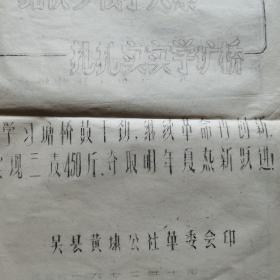 扎扎实实学圹桥
学习塘桥鼓干劲，继续革命再创新
实现三麦450斤，夺取明年夏熟新跃进！
吴县黄埭公社革委会印